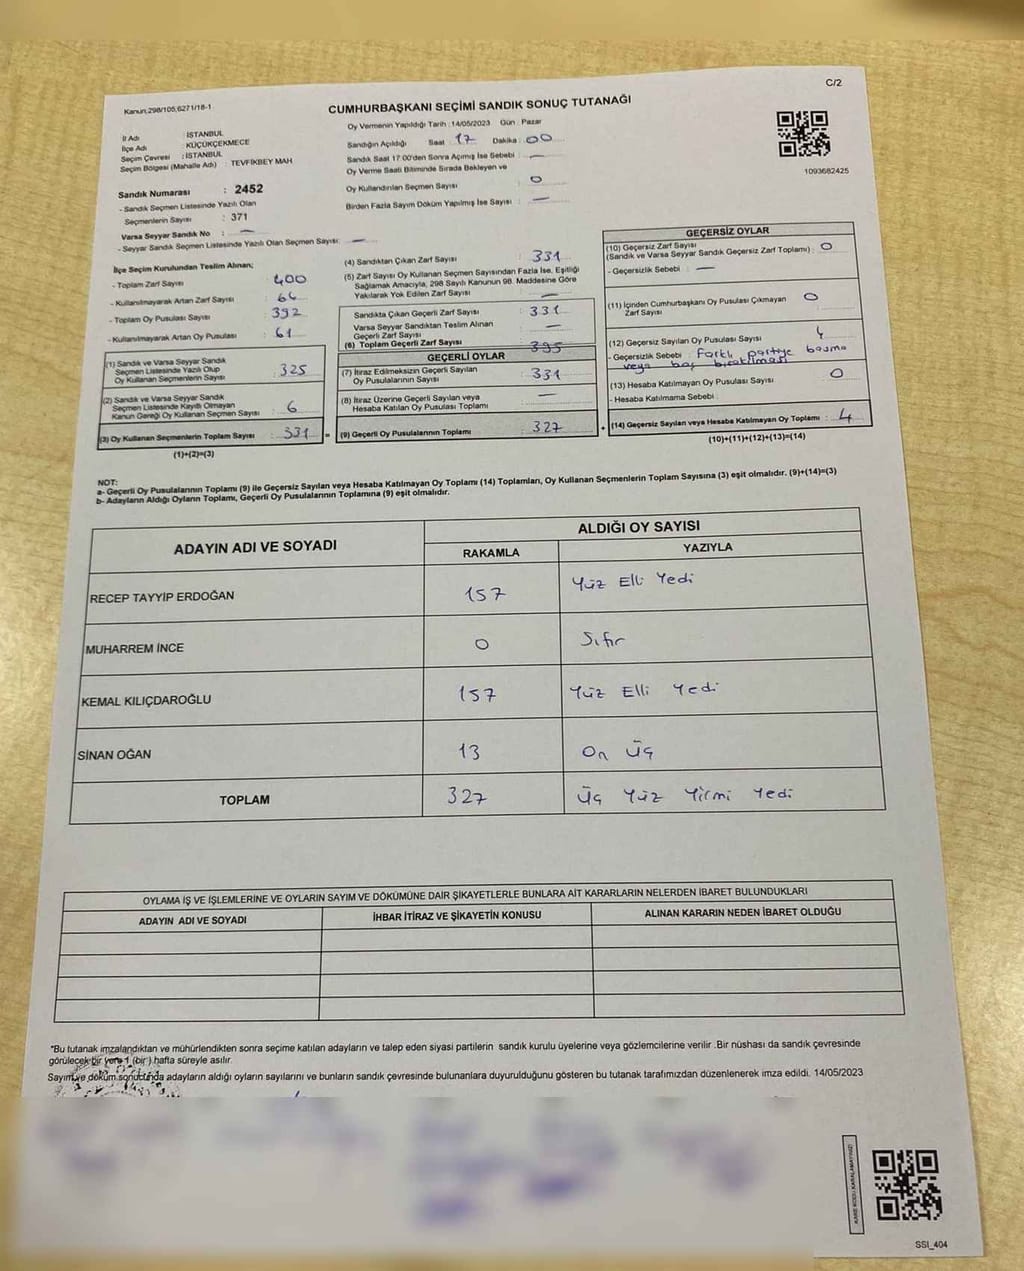 C/2
Kanun,298/105,6271/18-1
CUMHURBAŞKANI SEÇİMİ SANDIK SONUÇ TUTANAĞI
İl Adı : İSTANBUL
İlçe Adı : KÜÇÜKÇEKMECE
Seçim Çevresi : İSTANBUL
Seçim Bölgesi (Mahalle Adı) : TEVFİKBEY MAH
Sandık Numarası : 2452
- Sandık Seçmen Listesinde Yazılı Olan
Seçmenlerin Sayısı : 371
Varsa Seyyar Sandık No : —
- Seyyar Sandık Seçmen Listesinde Yazılı Olan Seçmen Sayısı: —
Oy Vermenin Yapıldığı Tarih : 14/05/2023 Gün : Pazar
Sandığın Açıldığı Saat : 17 Dakika : 00
Sandık Saat 17:00'den Sonra Açımış İse Sebebi : —
Oy Verme Saati Bitiminde Sırada Bekleyen ve
Oy Kullandırılan Seçmen Sayısı : 0
Birden Fazla Sayım Döküm Yapılmış İse Sayısı : —
1093682425
İlçe Seçim Kurulundan Teslim Alınan;
- Toplam Zarf Sayısı : 400
- Kullanılmayarak Artan Zarf Sayısı :
- Toplam Oy Pusulası Sayısı : 392
- Kullanılmayarak Artan Oy Pusulası : 61
(1) Sandık ve Varsa Seyyar Sandık
Seçmen Listesinde Yazılı Olup
Oy Kullanan Seçmenlerin Sayısı : 325
(2) Sandık ve Varsa Seyyar Sandık
Seçmen Listesinde Kayıtlı Olmayan
Kanun Gereği Oy Kullanan Seçmen Sayısı : 6
(3) Oy Kullanan Seçmenlerin Toplam Sayısı : 331 =
(1)+(2)=(3)
(4) Sandıktan Çıkan Zarf Sayısı : 331
(5) Zarf Sayısı Oy Kullanan Seçmen Sayısından Fazla İse, Eşitliği
Sağlamak Amacıyla, 298 Sayılı Kanunun 98. Maddesine Göre
Yakılarak Yok Edilen Zarf Sayısı : —
Sandıkta Çıkan Geçerli Zarf Sayısı : 331
Varsa Seyyar Sandıktan Teslim Alınan
Geçerli Zarf Sayısı : —
(6) Toplam Geçerli Zarf Sayısı : 395
GEÇERLİ OYLAR
(7) İtiraz Edilmeksizin Geçerli Sayılan
Oy Pusulalarının Sayısı : 331
(8) İtiraz Üzerine Geçerli Sayılan veya
Hesaba Katılan Oy Pusulası Toplamı : —
(9) Geçerli Oy Pusulalarının Toplamı : 327 +
GEÇERSİZ OYLAR
(10) Geçersiz Zarf Sayısı
(Sandık ve Varsa Seyyar Sandık Geçersiz Zarf Toplamı) : 0
- Geçersizlik Sebebi : —
(11) İçinden Cumhurbaşkanı Oy Pusulası Çıkmayan
Zarf Sayısı : 0
(12) Geçersiz Sayılan Oy Pusulası Sayısı : 4
- Geçersizlik Sebebi : Farklı partiye basma
veya boş bırakılması
(13) Hesaba Katılmayan Oy Pusulası Sayısı : 0
- Hesaba Katılmama Sebebi :
(14) Geçersiz Sayılan veya Hesaba Katılmayan Oy Toplamı : 4
(10)+(11)+(12)+(13)=(14)
NOT:
a- Geçerli Oy Pusulalarının Toplamı (9) ile Geçersiz Sayılan veya Hesaba Katılmayan Oy Toplamı (14) Toplamları, Oy Kullanan Seçmenlerin Toplam Sayısına (3) eşit olmalıdır. (9)+(14)=(3)
b- Adayların Aldığı Oyların Toplamı, Geçerli Oy Pusulalarının Toplamına (9) eşit olmalıdır.
ADAYIN ADI VE SOYADI
ALDIĞI OY SAYISI
RAKAMLA YAZIYLA
RECEP TAYYİP ERDOĞAN 157 Yüz Elli Yedi
MUHARREM İNCE 0 Sıfır
KEMAL KILIÇDAROĞLU 157 Yüz Elli Yedi
SİNAN OĞAN 13 On Üç
TOPLAM 327 Üç Yüz Yirmi Yedi
OYLAMA İŞ VE İŞLEMLERİNE VE OYLARIN SAYIM VE DÖKÜMÜNE DAİR ŞİKAYETLERLE BUNLARA AİT KARARLARIN NELERDEN İBARET BULUNDUKLARI
ADAYIN ADI VE SOYADI İHBAR İTİRAZ VE ŞİKAYETİN KONUSU ALINAN KARARIN NEDEN İBARET OLDUĞU
*Bu tutanak imzalandıktan ve mühürlendikten sonra seçime katılan adayların ve talep eden siyasi partilerin sandık kurulu üyelerine veya gözlemcilerine verilir .Bir nüshası da sandık çevresinde
görülecek bir yere 1 (bir ) hafta süreyle asılır.
Sayım ve döküm sonucunda adayların aldığı oyların sayılarını ve bunların sandık çevresinde bulunanlara duyurulduğunu gösteren bu tutanak tarafımızdan düzenlenerek imza edildi. 14/05/2023
SSI_404